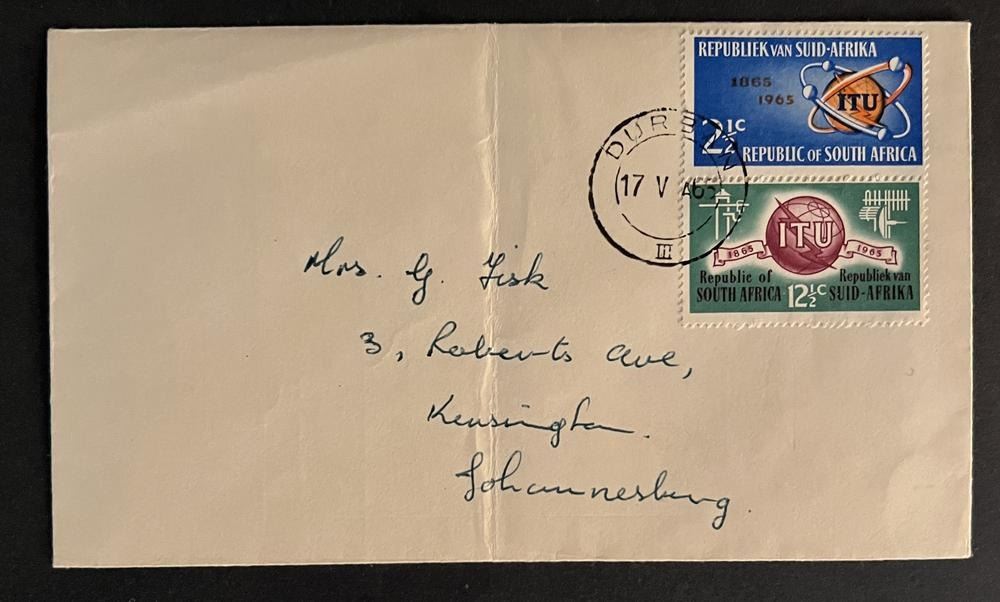 REPUBLIEK VAN SUID-AFRIKA
1865
1965
ITU
2½c
REPUBLIC OF SOUTH AFRICA
DURBAN
17 V A65
III
ITU
1865 1965
Republic of
SOUTH AFRICA
12½c
Republiek van
SUID-AFRIKA
Mrs. G. Fisk
3, Roberts Ave,
Kensington.
Johannesburg.